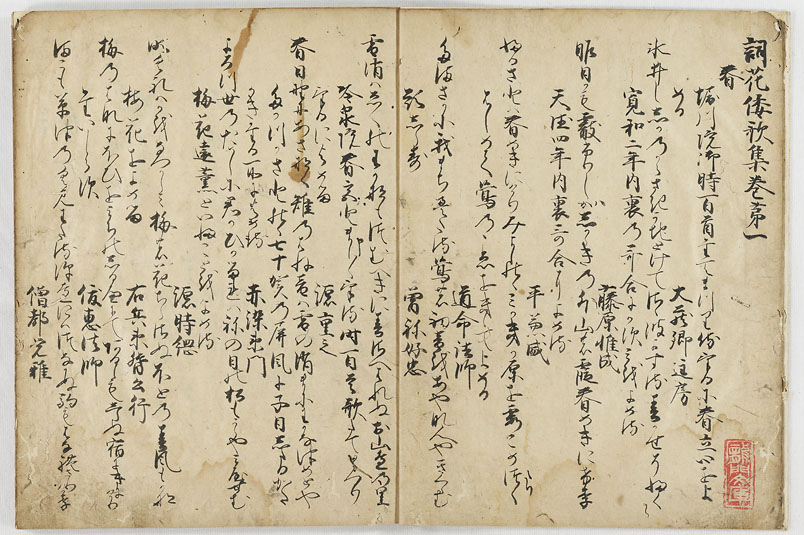 詞花倭歌集巻第一
春
堀川院御時百首哥たてまつり侍けるに春立心をよ
める
大蔵卿匡房
氷井し志かのからさきうちとけてさゝ波よする春かせそふく
寛和二年内裏の哥合にかすみをよめる
藤原惟成
昨日かも霰ふりしか志からきのと山の霞春めきにけり
天徳四年内裏哥合によめる
平兼盛
ふるさとは春めきにけりみよしのゝみかきか原を霞こめたり
はしめて鶯のこゑをきゝてよめる
道命法師
たまさかに我まちえたる鶯の初音をあやな人やきくらむ
題しらす
曽祢好忠
雪消はゑくのわかなもつむへきに春さへはれぬみ山への里
冷泉院春宮と申ける時百首歌たてまつり
けるによめる
源重之
春日野にあさなく雉のはね音は雪の消まにわかなつめとや
たかつかさ殿の七十賀の屏風に子日したるかた
かきたる所によめる
赤染衛門
よろつ世のためしに君かひかるれは祢の日の松もうらやみやせむ
梅花遠薫といふことをよめる
源時綱
吹くれはかをなつかしみ梅花ちらさぬほとの春風もかな
梅花をよめる
右兵衛督公行
梅の花にほひをみちのしるへにてあるしもしらぬ宿にきにけり
題しらす
俊恵法師
まこも草つのくみわたる沢辺にはつなかぬ駒もはなれさりけり
僧都覚雅